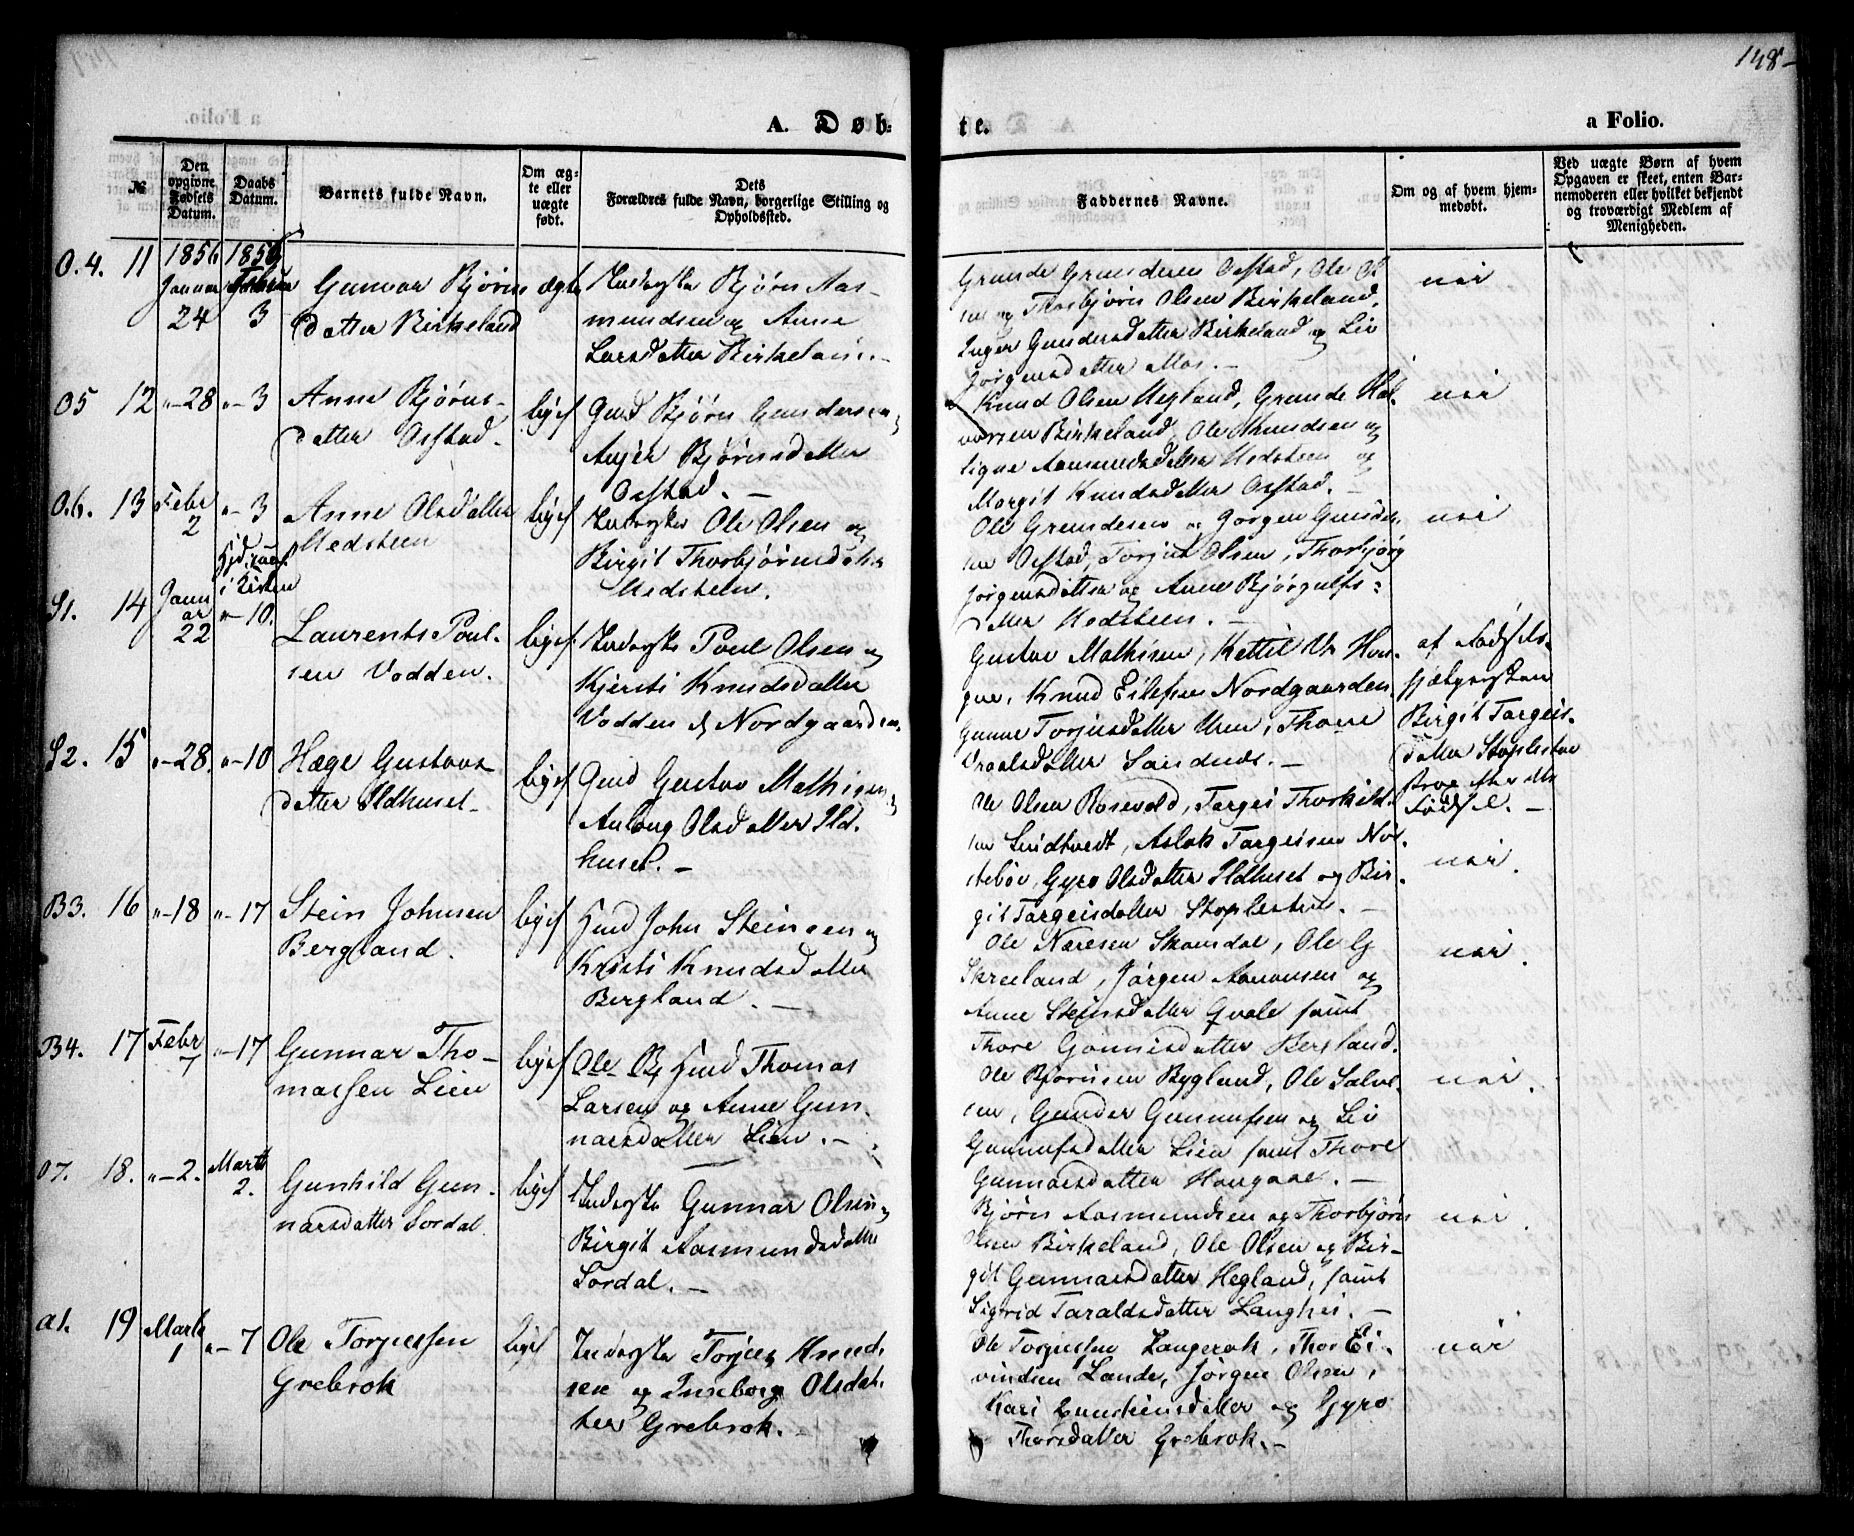 148
A. Døb-
te.
a Folio.
№
Den opgivne Fødsels Datum.
Daabs Datum.
Barnets fulde Navn.
Om ægte eller uægte født.
Dets Forældres fulde Navn, borgerlige Stilling og Opholdssted.
Faddernes Navne.
Om og af hvem hjemmedøbt.
Ved uægte Børn af hvem Opgaven er skeet, enten Barnemoderen eller hvilket bekjendt og troværdigt Medlem af Menigheden.
O.4. 11 1856 Januar 24
1856 Februar 3
Gunvor Bjørns
datter Birkeland
ægte
Bjørn Aas-
mundsen og Anne
Larsdatter Birkeland.
Grunde Grundesen Ostad, Ole Ol
sen og Thorbjørn Olsen Birkeland,
Inger Gundersdatter Birkeland og Liv
Jørgensdatter Moe.
nei
O5 12 "-28 "-3
Anne Bjørns-
datter Ostad.
liges
Gmd Bjørn Gundersen og
Anjer Bjørnsdatter
Ostad.
Knud Olsen Hegland, Grunde Hal-
vorsen Birkeland, Ole Knudsen og
Signe Aasmundsdatter Medsteen og
Margit Knudsdatter Ostad.
nei
O.6. 13 Febr 2 "-3
Anne Olsdatter
Medsteen
ligef
Ole Olsen og
Birgit Thorbjørnsdatter
Medsteen.
Ole Grundesen og Jørgen Gunder-
sen Ostad, Torjus Olsen, Thorbjørg
Jørgensdatter og Anne Bjørgulfs-
datter Medsteen.
nei
S1. 14 Januar 22
i Kirken
"-10.
Laurents Poul-
sen Vodden.
ligef
Poul Olsen og
Kjersti Knudsdatter
Vodden Nordgaarden.
Gustav Mathisen, Kettil
Knud Eilefsen Nordgaarden,
Gunne Torjusdatter Uren, Thone
Sandnes.
af Fødsels-
hjælpersken
Birgit Targeis-
datter Stoplesteen
Fødsel.
S2. 15 "-28. "-10
Hæge Gustavs-
datter Ildhuset
ligef
Gmd Gustav Mathisen og
Anlaug Olsdatter Ild-
huset.
Ole Olsen Rosevold, Targei Thorkild-
sen Lindtvedt, Aslak Targeisen Nor-
stebøe, Gyro Olsdatter Ildhuset og Bir-
git Targeisdatter Stoplesteen.
nei.
B3. 16 "-18 "-17
Stein Johnsen
Bergland.
ligef
Hmd John Steinsen og
Kristi Knudsdatter
Bergland.
Ole Næresen Skomdal, Ole G
Skreeland, Jørgen Aanonsen og
Anne Steinsdatter Qvale samt
Thore Gunnersdatter Bergland.
nei.
B4. 17 Febr 7 "-17
Gunnar Tho-
massen Lien
ligef
Ole Bj Hmd Thomas
Larsen og Anne Gun-
narsdatter Lien.
Ole Bjørnsen Bygland, Ole Salve-
sen, Gunder Gunnufsen og Liv
Gunnufsdatter Lien samt Thore
Gunnarsdatter Haugaae.
nei.
O7. 18. "-2. Marts 2.
Gunhild Gun-
narsdatter Sordal
ligef
Gunnar Olsen og
Birgit Aasmundsdatter
Sordal.
Bjørn Aasmundsen og Thorbjørn
Olsen Birkeland, Ole Olsen og Bir-
git Gunnarsdatter Hegland, samt
Sigrid Taraldsdatter Langhei.
nei.
A1. 19 Marts 1 "-7
Ole Torjussen
Grebrok
ligef
Torjus Knud-
sen og Ingeborg Olsdat-
ter Grebrok.
Ole Torjussen Langerak, Thor Ei-
vindsen Lande, Jørgen Olsen,
Kari datter og Gyro
Thorsdatter Grebrok.
nei